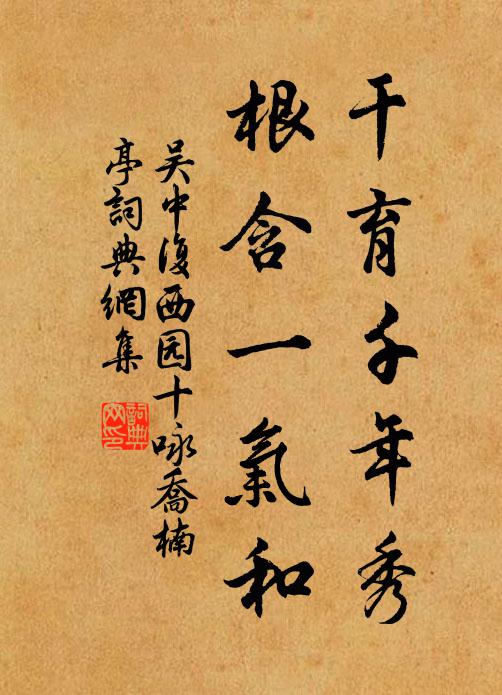 干育千年秀
根含一氣和
吳中復西园十咏喬楠
亭詞典網集
詞典
网印